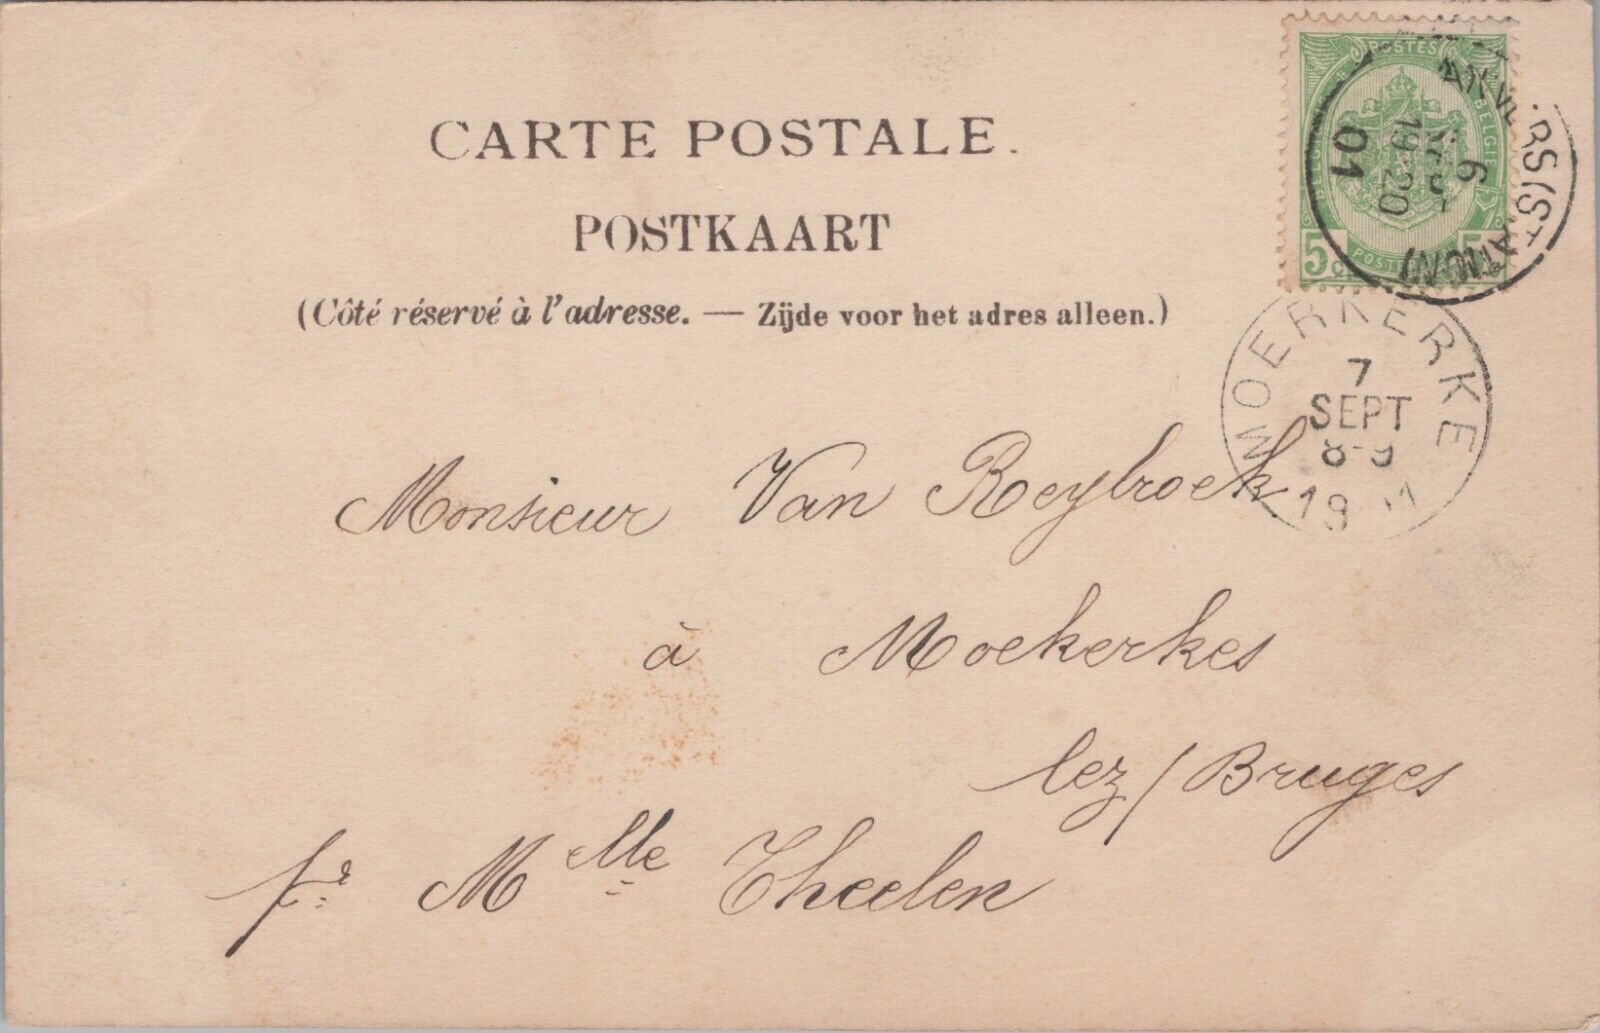 CARTE POSTALE.
POSTKAART
(Côté réservé à l'adresse. — Zijde voor het adres alleen.)
POSTES
BELGIE
5
6
SEPT
19-20
01
MOERKERKE
7
SEPT
8-9
Monsieur Van Reybroek
à Moekerkes
lez/Bruges
pr Melle Theelen